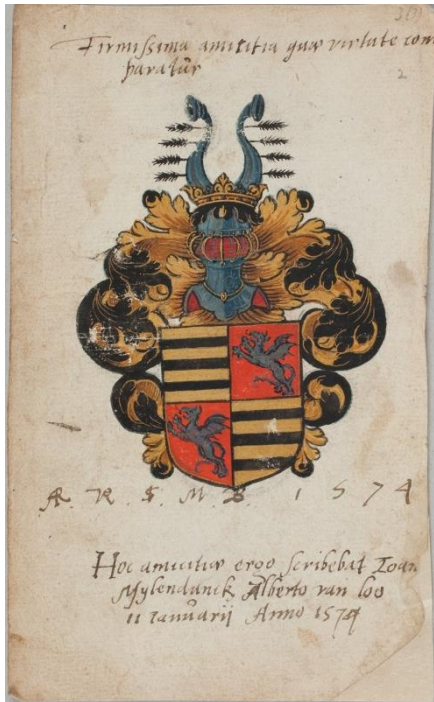 Firmissima amicitia quae virtute com
paratur
2
1574
Hoc amicitiae ergo scribebat Joan
Mylendunck Alberto van loo
11 Januarii Anno 1574